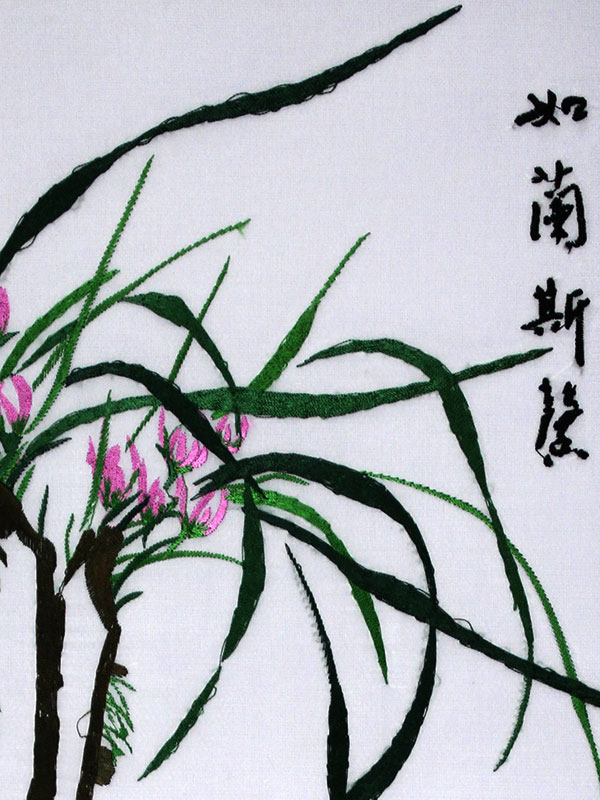 如蘭斯馨